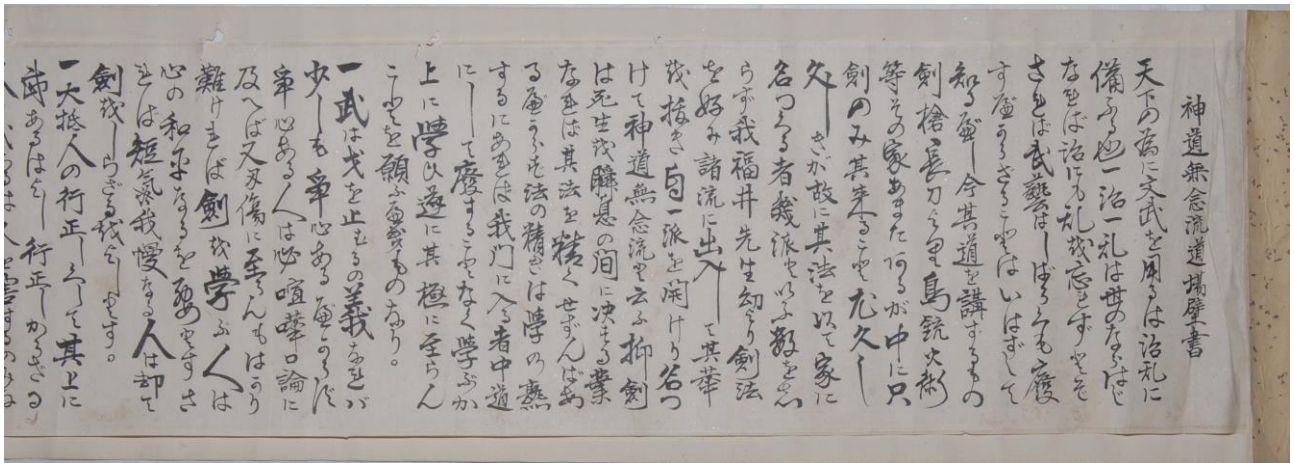 神道無念流道場壁書
天下の為に文武を用るは治乱に
備ふる也一治一乱は世のならはし
なれば治にも乱を忘れずとぞ
されば武藝はしばらくも廢
すべからざることはいはずして
知るべし今其道を講ずるもの
劍槍長刀より鳥銃火術
等その家あまたあるが中に只
劍のみ其来ること尤久し
久しきが故に其法を以て家に
名づくる者幾派といふ数をし
らず我福井先生幼より劍法
を好み諸流に出入して其華
を抜き自一派を開けり名づ
けて神道無念流と云ふ抑劍
は死生を瞬息の間に決する業
なれば其法を精くせずんばあ
るべからず法の精きは學の熟
するにあれば我門に入る者中道
にして廢することなく學ぶが
上に學び遂に其極に至らん
ことを願ふべきものなり。
一武は戈を止むるの義なれバ
少しも爭心あるべからず
爭心ある人は必喧嘩口論に
及へば又刃傷に至らんもはかり
難ければ劍を學ぶ人は
心の和平なるを要とすさ
れば短氣我慢なる人は却て
劍をしらざるをよしとす。
一大抵人の行正しくして其上に
武あるはよし行正しからざる